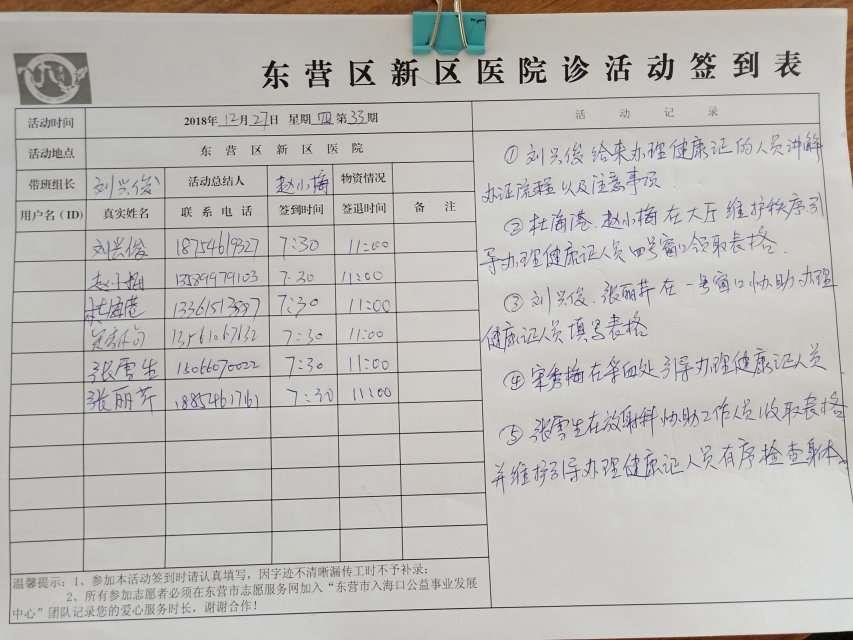 东营区新区医院诊活动签到表
活动时间 2018年12月27日 星期四第33期 活动记录
活动地点 东营区新区医院
带班组长 刘兴俊 活动总结人 赵小梅 物资情况
用户名（ID） 真实姓名 联系电话 签到时间 签退时间 备注
刘兴俊 18754619327 7:30 11:00
赵小梅 7:30 11:00
杜海港 7:30 11:00
7:30 11:00
张雪生 15066070022 7:30 11:00
张丽芹 18854617161 7:30 11:00
①刘兴俊给来办理健康证的人员讲解
办证流程以及注意事项
②杜海港、赵小梅在大厅维护秩序引
导办理健康证人员四号窗口领取表格.
③刘兴俊、张丽芹在一号窗口协助办理
健康证人员填写表格
④宋秀梅在 处引导办理健康证人员
⑤张雪生在放射科协助工作人员收取表格
并维护引导办理健康证人员有序检查身体。
温馨提示：1、参加本活动签到时请认真填写，因字迹不清晰漏传工时不予补录；
2、所有参加志愿者必须在东营市志愿服务网加入“东营市入海口公益事业发展
中心”团队记录您的爱心服务时长，谢谢合作！